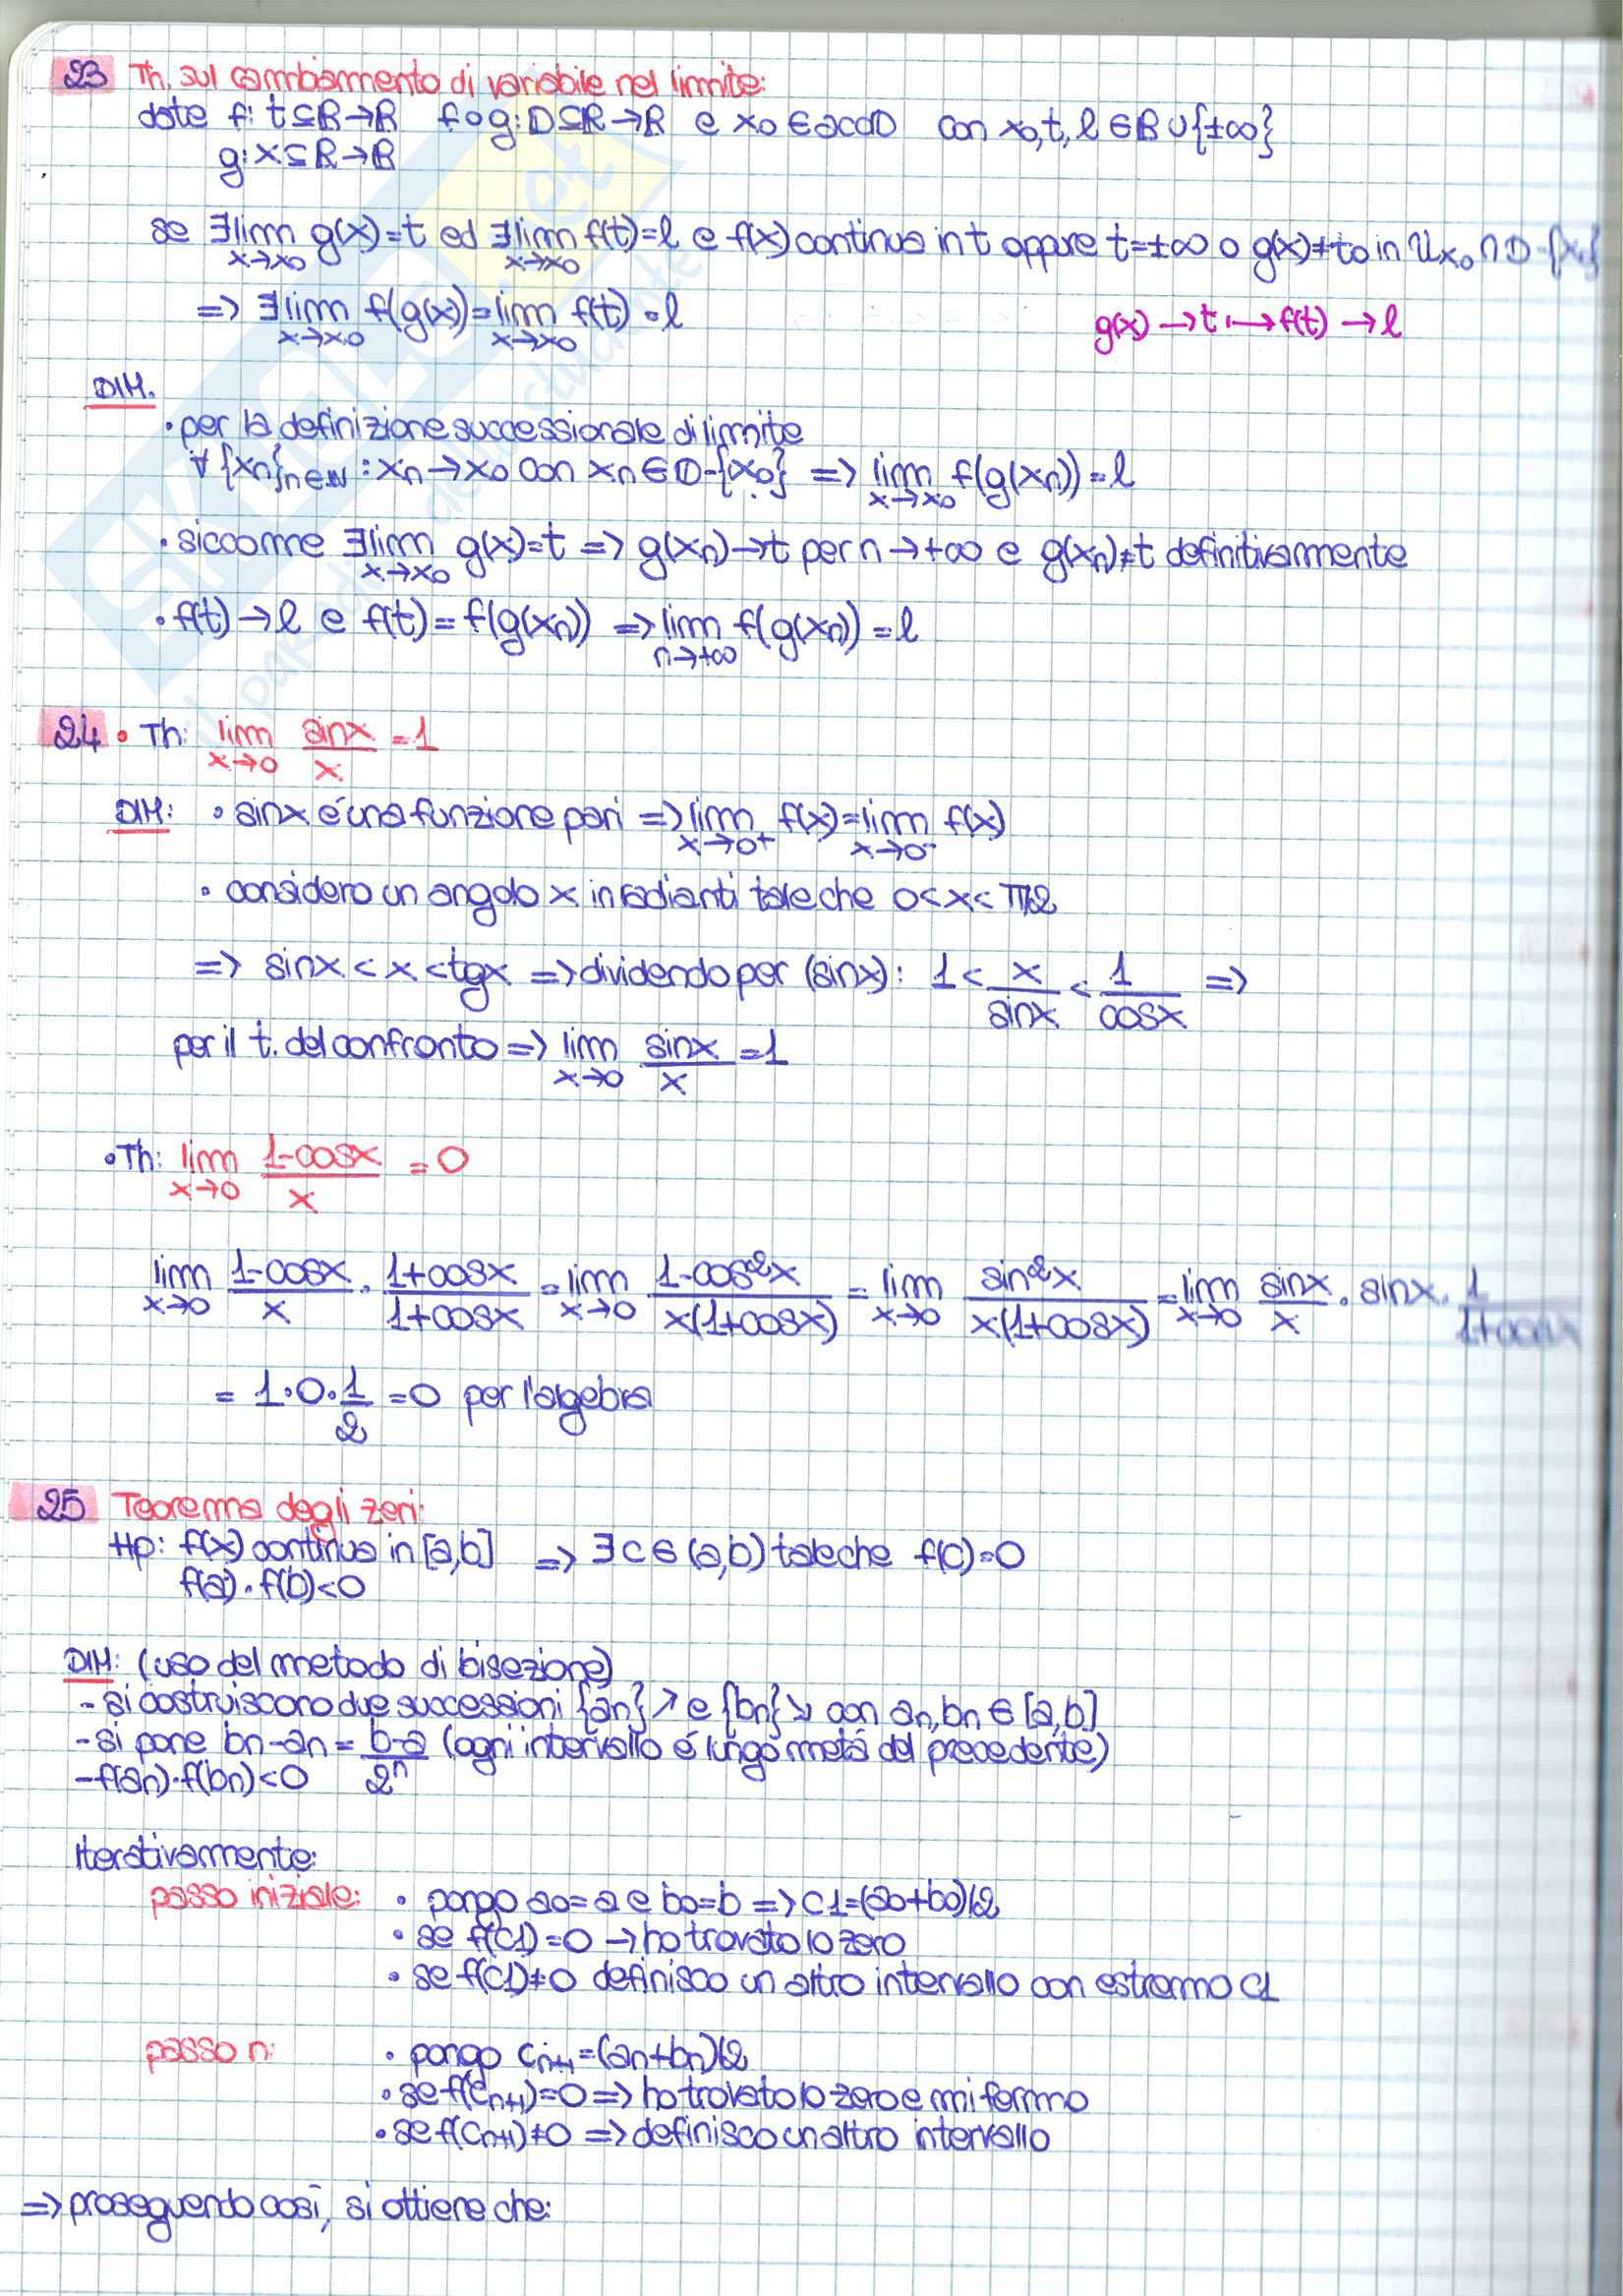 23 Th. sul cambiamento di variabile nel limite:
date f: t⊆R→R f∘g: D⊆R→R e x₀∈accD con x₀,t,l∈R∪{±∞}
g: X⊆R→R
se ∃lim x→x₀ g(x)=t ed ∃lim x→x₀ f(t)=l e f(x) continua in t oppure t=±∞ o g(x)≠t₀ in Ux₀∩D-{x₀}
=> ∃lim x→x₀ f(g(x))=lim x→x₀ f(t)=l
g(x)→t↦f(t)→l
DIM.
• per la definizione successionale di limite
∀{xn}n∈N: xn→x₀ con xn∈D-{x₀} => lim x→x₀ f(g(xn))=l
• siccome ∃lim x→x₀ g(x)=t => g(xn)→t per n→+∞ e g(xn)≠t definitivamente
• f(t)→l e f(t)=f(g(xn)) => lim n→+∞ f(g(xn))=l
24 • Th: lim x→0 sinx/x =1
DIM: • sinx é una funzione pari => lim x→0⁺ f(x)=lim x→0⁻ f(x)
• considero un angolo x in radianti tale che 0<x<π/2
=> sinx<x<tgx => dividendo per (sinx): 1< x/sinx < 1/cosx =>
per il t. del confronto => lim x→0 sinx/x =1
• Th: lim x→0 1-cosx/x =0
lim x→0 1-cosx/x · 1+cosx/1+cosx = lim x→0 1-cos²x/x(1+cosx) = lim x→0 sin²x/x(1+cosx) = lim x→0 sinx/x · sinx · 1/1+cosx
= 1·0·1/2 =0 per l'algebra
25 Teorema degli zeri:
Hp: f(x) continua in [a,b] => ∃c∈(a,b) tale che f(c)=0
f(a)·f(b)<0
DIM: (uso del metodo di bisezione)
- si costruiscono due successioni {an}↗ e {bn}↘ con an,bn∈[a,b]
- si pone bn-an= b-a/2ⁿ (ogni intervallo é lungo metá del precedente)
- f(an)·f(bn)<0
Iterativamente:
passo iniziale: • pongo a0=a e b0=b => c1=(a0+b0)/2
• se f(c1)=0 → ho trovato lo zero
• se f(c1)≠0 definisco un altro intervallo con estremo c1
passo n: • pongo cn+1=(an+bn)/2
• se f(cn+1)=0 => ho trovato lo zero e mi fermo
• se f(cn+1)≠0 => definisco un altro intervallo
=> proseguendo così, si ottiene che: